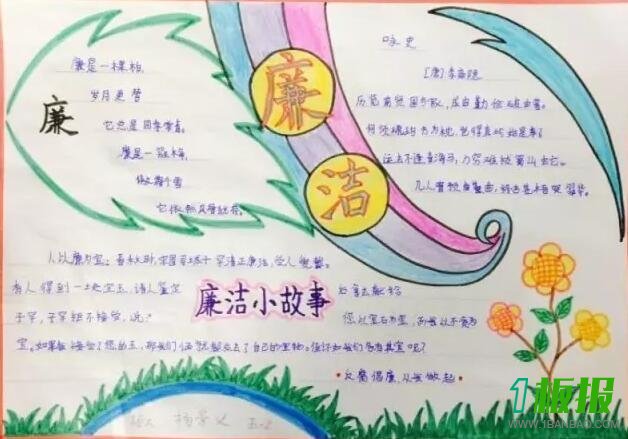 廉
廉是一棵柏
岁月更替
它总是四季常青
廉是一
傲霜斗雪
它依然
廉
洁
咏史
[唐] 李商隐
历览前贤国与家，成由勤俭破由奢。
何须琥珀方为枕，
运去不逢青海马，力穷难拔蜀山蛇。
几人曾预南薰曲，终古苍梧哭翠华。
人以廉为宝：春秋时，宋国司城子罕清正廉洁，受人爱戴。
有人得到一块宝玉，请人鉴定
后拿去献给
廉洁小故事
子罕，子罕拒不接受，说：
您以宝石为宝，而我以不贪为
宝。如果我接受了您的玉，那我们俩就都失去了自己的宝物。倒不如我们各有其宝呢？
反腐倡廉，从我做起
五
1板报
WWW.1BANBAO.COM